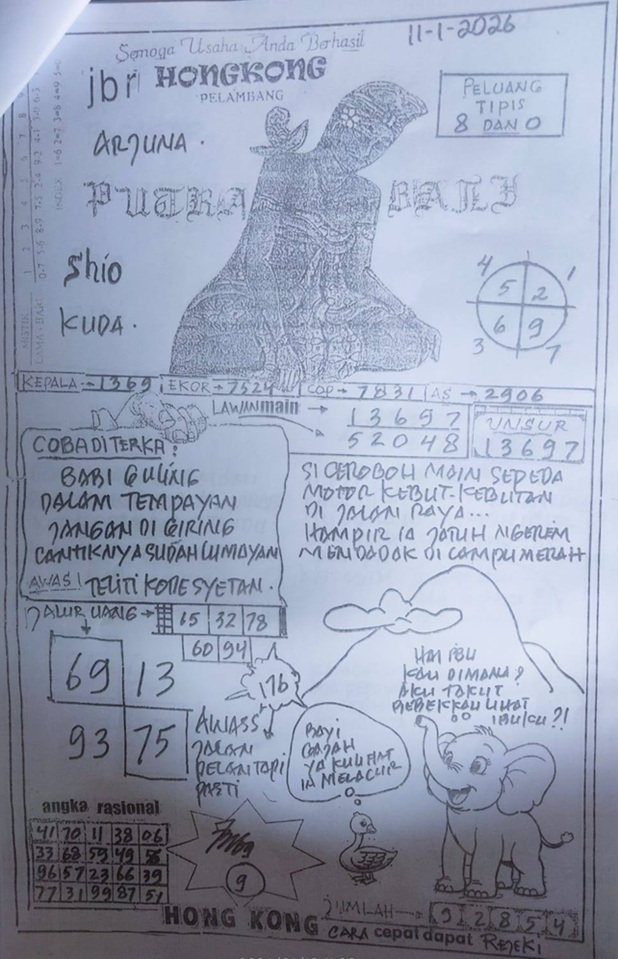 Semoga Usaha Anda Berhasil
11-1-2026
jbr HONGKONG
PELAMBANG
PELUANG
TIPIS
8 DAN 0
ARJUNA.
PUTRA BALI
Shio
KUDA.
4 1
5 2
6 9
3 7
KEPALA → 1369 EKOR → 7524 COP → 7831 AS → 2906
LAWANmain → 13697
52048
UNSUR
13697
COBA DITERKA:
BABI GULING
DALAM TEMPAYAN
JANGAN DI GIRING
CANTIKNYA SUDAH LUMAYAN
AWAS! TELITI KODE SYETAN.
SI CEROBOH MAIN SEPEDA
MOTOR KEBUT-KEBUTAN
DI JALAN RAYA...
HAMPIR IA JATUH NGEREM
MENDADAK DI LAMPU MERAH
JALUR UANG → 15 32 78
60 94
69 13
93 75
176
AWASS
JALAN
PELAN TAPI
PASTI
HAI IBU
KAU DIMANA?
AKU TAKUT
BEBEK KAU LIHAT
IBUKU?!
BAYI
GAJAH
YA KULIHAT
IA MELACUR
angka rasional
41 70 11 38 06
33 68 59 49
96 57 23 66 39
77 31 99 87 51
9
JUMLAH → 9 2 8 5 4
HONG KONG CARA cepat dapat REJEKI